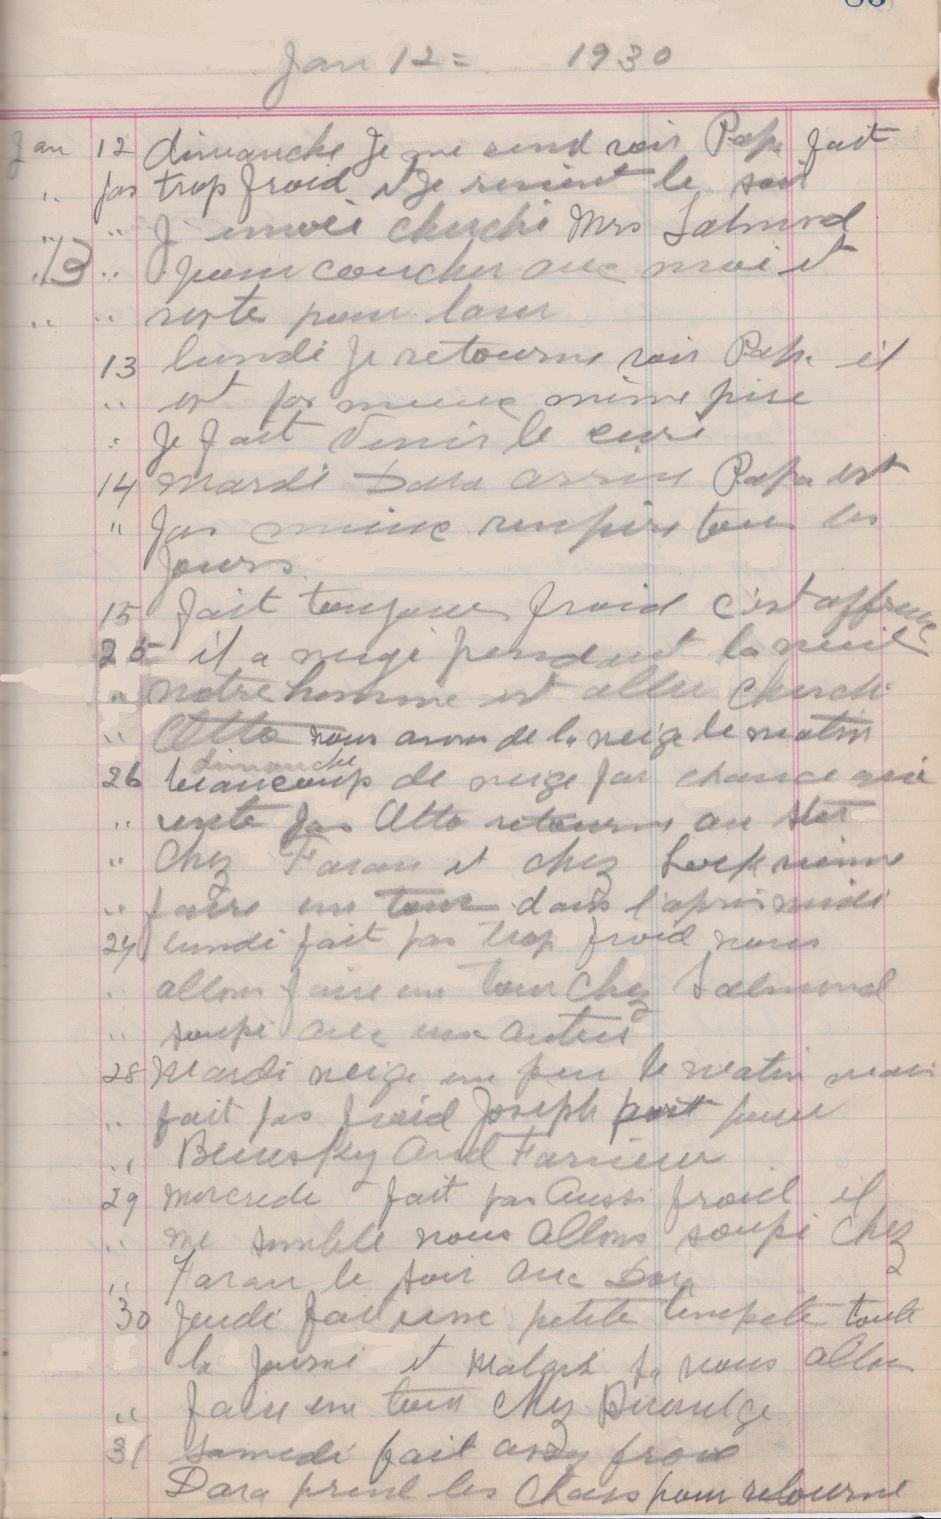 Jan 12 = 1930
Jan 12 dimanche Je me rend voir Papa fait
" pas trop froid et Je revient le soir
" " J envoié cherché Mrs Salmond
" 13 " pour coucher avec moi et
" " reste pour
13 lundi Je retourne voir Papa il
" est pas mieux même pire
" Je fait Venir le curé
14 mardi Dora arrive Papa est
" pas mieux rempire tous les
jours
15 fait toujours froid c'est affreux
25 il a neigé pendant la nuit
" notre homme est aller cherché
" Otto nous avons de la neige le matin
dimanche
26 beaucoup de neige par chance qui
" vente pas Otto retourne au
" Chez Faran et chez vienne
" faire une tour dans l'après midi
27 lundi fait pas trop froid nous
" allons faire un tour Chez Salmond
" soupé avec eux autres
28 Mardi neige un peu le matin mais
" fait pas froid Joseph part pour
" Bluesky and
29 mercredi fait pas Aussi froid il
" me semble nous Allons soupé Chez
" Faran le soir avec Dora
30 Jeudi fait une petite tempete toute
la journé et malgré sa nous allons
" faire un tour chez
31 samedi fait assez froid
Dora prend les Chars pour retourné